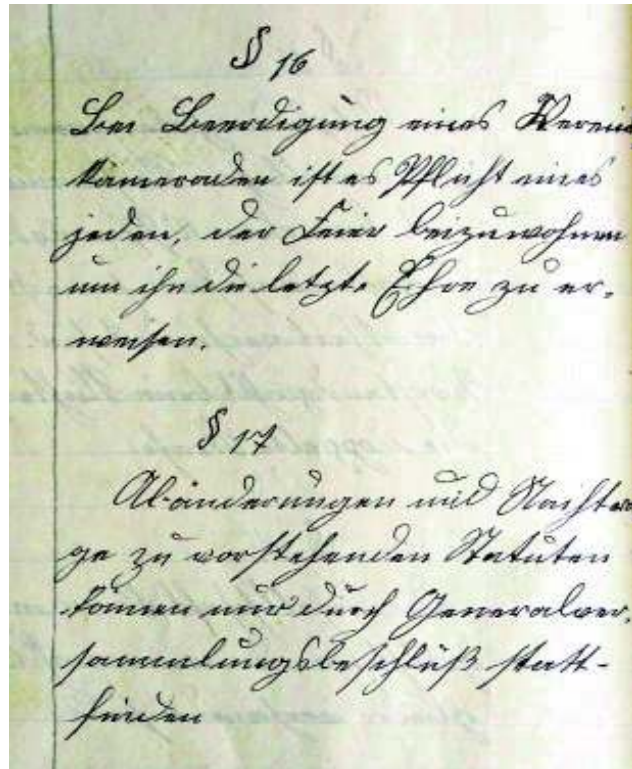 § 16
Bei Beerdigung eines Vereins
kameraden ist es Pflicht eines
jeden, der Feier beizuwohnen
um ihn die letzte Ehre zu er-
weisen.
§ 17
Abänderungen und Nachträ
ge zu vorstehenden Statuten
können nur durch Generalver-
sammlungsbeschluß statt-
finden